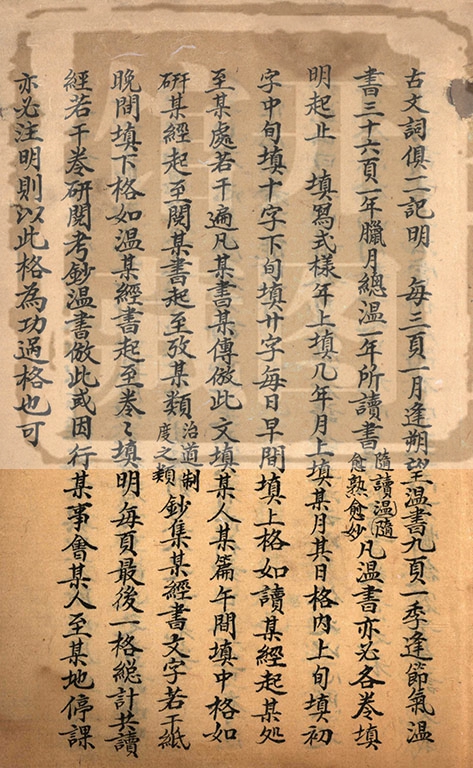 古文詞俱一一記明　每三頁一月逢朔望温書九頁一季逢節氣温
書三十六頁一年臘月總温一年所讀書隨讀温隨愈熟愈妙凡温書亦必各卷填
明起止　填寫式樣年上填几年月上填某月其日格内上旬填初
字中旬填十字下旬填廿字每日早間填上格如讀某經起某処
至某處若干遍凡某書某傳倣此文填某人某篇午間填中格如
研某經起至閱某書起至攷某類治道制度之類鈔集某經書文字若干紙
晚間填下格如温某經書起至卷〻填明每頁最後一格總計共讀
經若干卷研閱考鈔温書倣此或因行某事會某人至某地停課
亦必注明則以此格為功過格也可